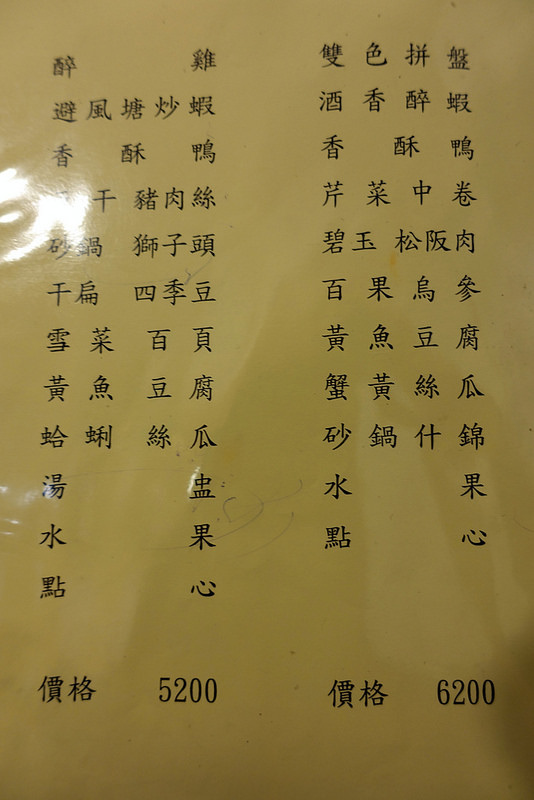 醉雞
避風塘炒蝦
香酥鴨
干豬肉絲
砂鍋獅子頭
干扁四季豆
雪菜百頁
黃魚豆腐
蛤蜊絲瓜
湯盅
水果
點心
價格 5200
雙色拼盤
酒香醉蝦
香酥鴨
芹菜中卷
碧玉松阪肉
百果烏參
黃魚豆腐
蟹黃絲瓜
砂鍋什錦
水果
點心
價格 6200